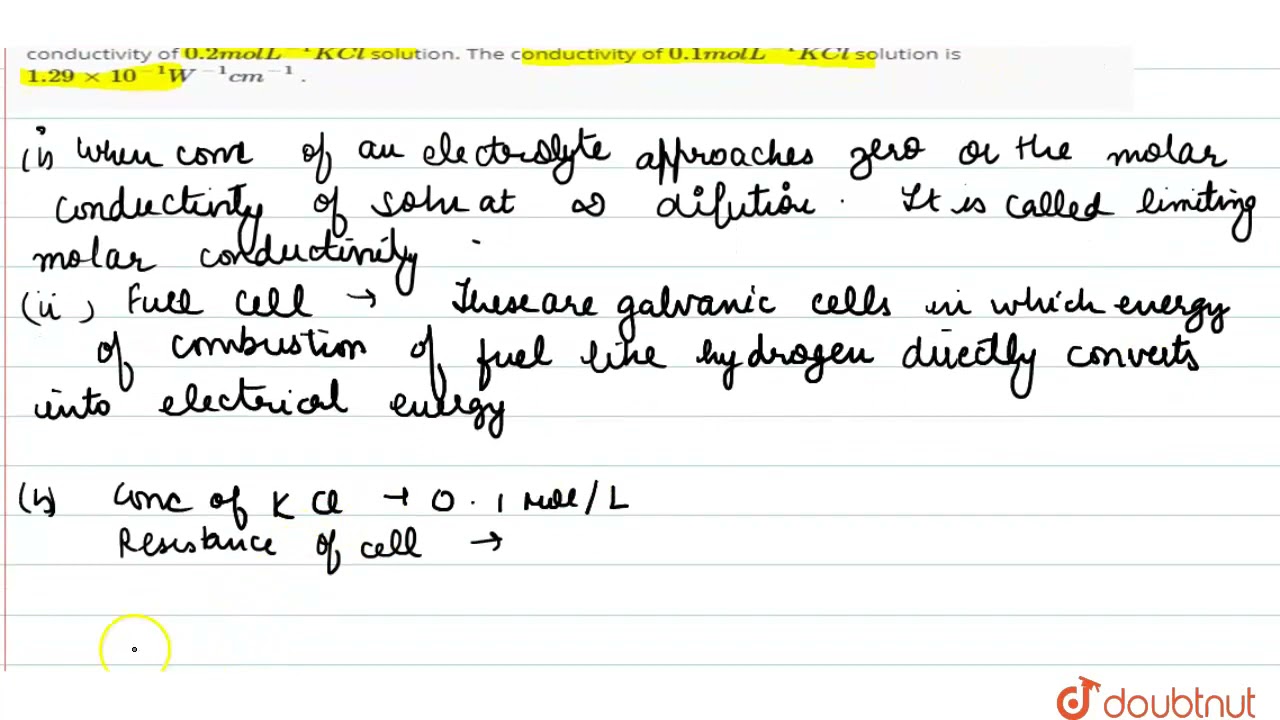 conductivity of 0.2molL⁻¹KCl solution. The conductivity of 0.1molL⁻¹KCl solution is
1.29 × 10⁻¹W⁻¹cm⁻¹ .
(i) When conc of an electrolyte approaches zero or the molar
conductivity of soln at ∞ dilution. It is called limiting
molar conductivity
(ii) Fuel cell → These are galvanic cells in which energy
of combustion of fuel like hydrogen directly converts
into electrical energy
(b) Conc of KCl → 0.1 mole/L
Resistance of cell →
doubtnut